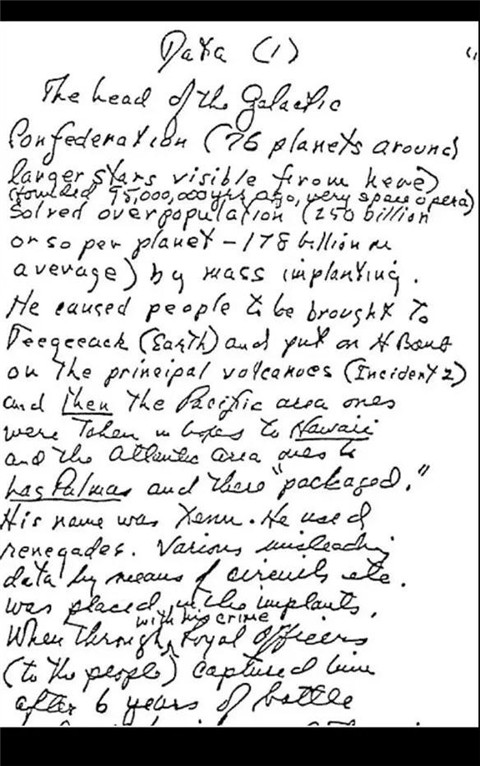 Data (1)
The head of the Galactic
Confederation (76 planets around
larger stars visible from here)
(founded 95,000,000 yrs ago, very space opera)
solved overpopulation (250 billion
or so per planet – 178 billion on
average) by mass implanting.
He caused people to be brought to
Teegeeack (Earth) and put an H Bomb
on the principal volcanoes (Incident 2)
and then the Pacific area ones
were taken in boxes to Hawaii
and the Atlantic area ones to
Las Palmas and there "packaged."
His name was Xenu. He used
renegades. Various misleading
data by means of circuits etc.
was placed in the implants.
with his crime
When through Loyal Officers
(to the people) captured him
after 6 years of battle